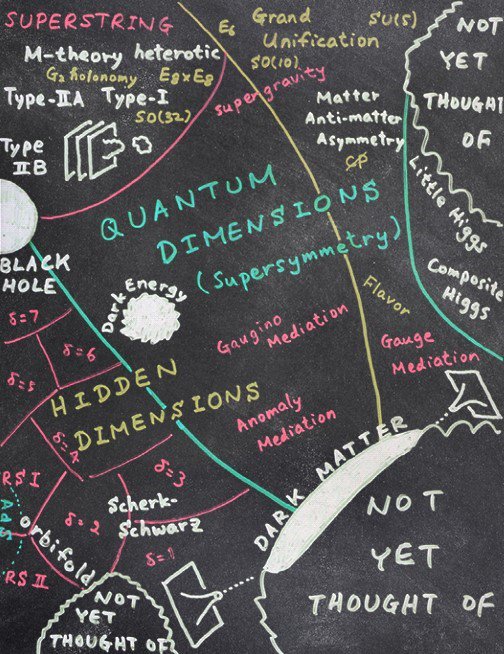 SUPERSTRING
M-theory heterotic
G₂ holonomy E₈×E₈
Type-IIA Type-I
SO(32)
Type
IIB
E₆ Grand
Unification
SU(5)
SO(10)
supergravity
Matter
Anti-matter
Asymmetry
CP
NOT
YET
THOUGHT
OF
Little Higgs
Composite
Higgs
QUANTUM
DIMENSIONS
(Supersymmetry)
BLACK
HOLE
Dark Energy
Flavor
Gaugino
Mediation
Gauge
Mediation
Anomaly
Mediation
δ=7
δ=6
δ=5
HIDDEN
DIMENSIONS
δ=4
δ=3
RS I
ADS
RS II
orbifold
δ=2
Scherk-
Schwarz
δ=1
DARK MATTER
NOT
YET
THOUGHT OF
NOT
YET
THOUGHT OF